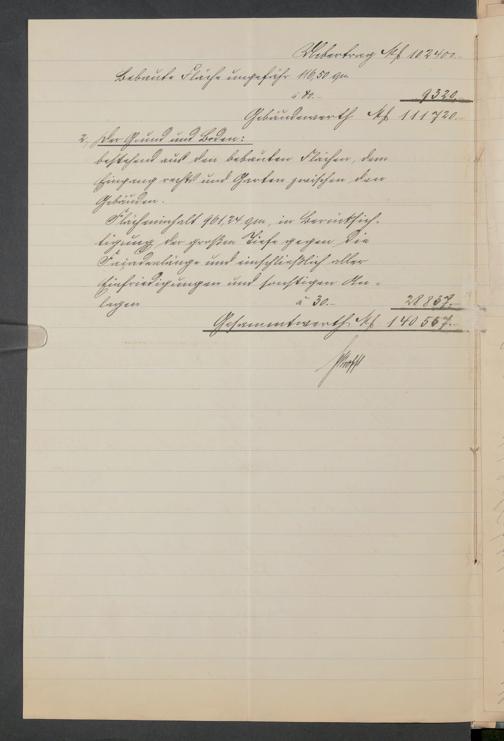 Uebertrag Mk 102400.-
Bebaute Fläche ungefähr 116,50 qm
à 80.- 9320.-
Gebäudewerth Mk 111720.-
2., Der Grund und Boden:
bestehend aus den bebauten Flächen, dem
Eingang rechts und Garten zwischen den
Gebäuden.
Flächeninhalt 961,24 qm, in Berücksich-
tigung der großen Tiefe gegen die
Façadenlänge und einschließlich aller
Einfriedigungen und sonstigen An-
lagen à 30.- 28837.-
Gesammtwerth Mk 140557.-